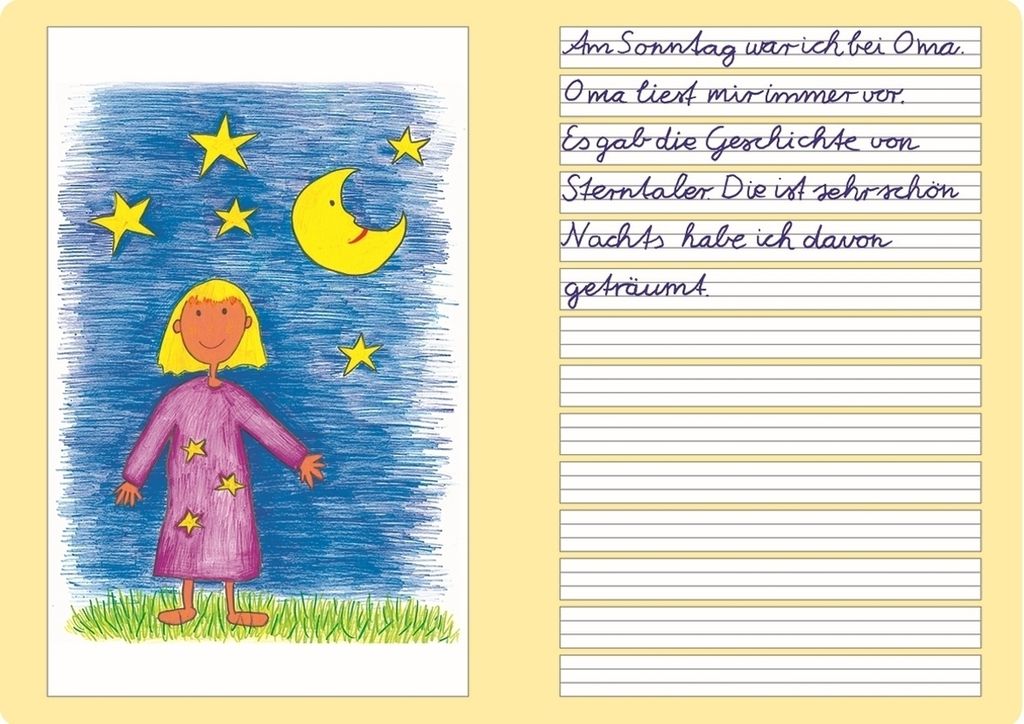 Am Sonntag war ich bei Oma.
Oma liest mir immer vor.
Es gab die Geschichte von
Sterntaler. Die ist sehr schön
Nachts habe ich davon
geträumt.